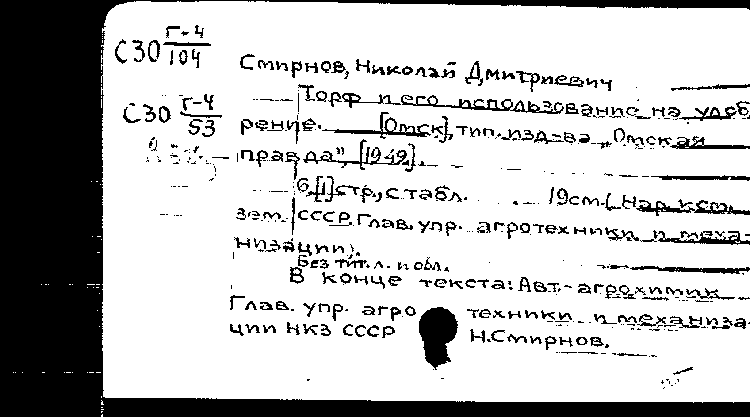 С30 Г-4/104
Смирнов, Николай Дмитриевич
Торф и его использование на удоб
С30 Г-4/53
рение. [Омск], тип. изд-ва „Омская
правда", [1942].
6,[1]стр., с табл. 19см.( Нар. ком.
зем. СССР. Глав. упр. агротехники и меха-
низации).
Без тит. л. и обл.
В конце текста: Авт.-агрохимик
Глав. упр. агротехники и механиза-
ции НКЗ СССР Н.Смирнов.